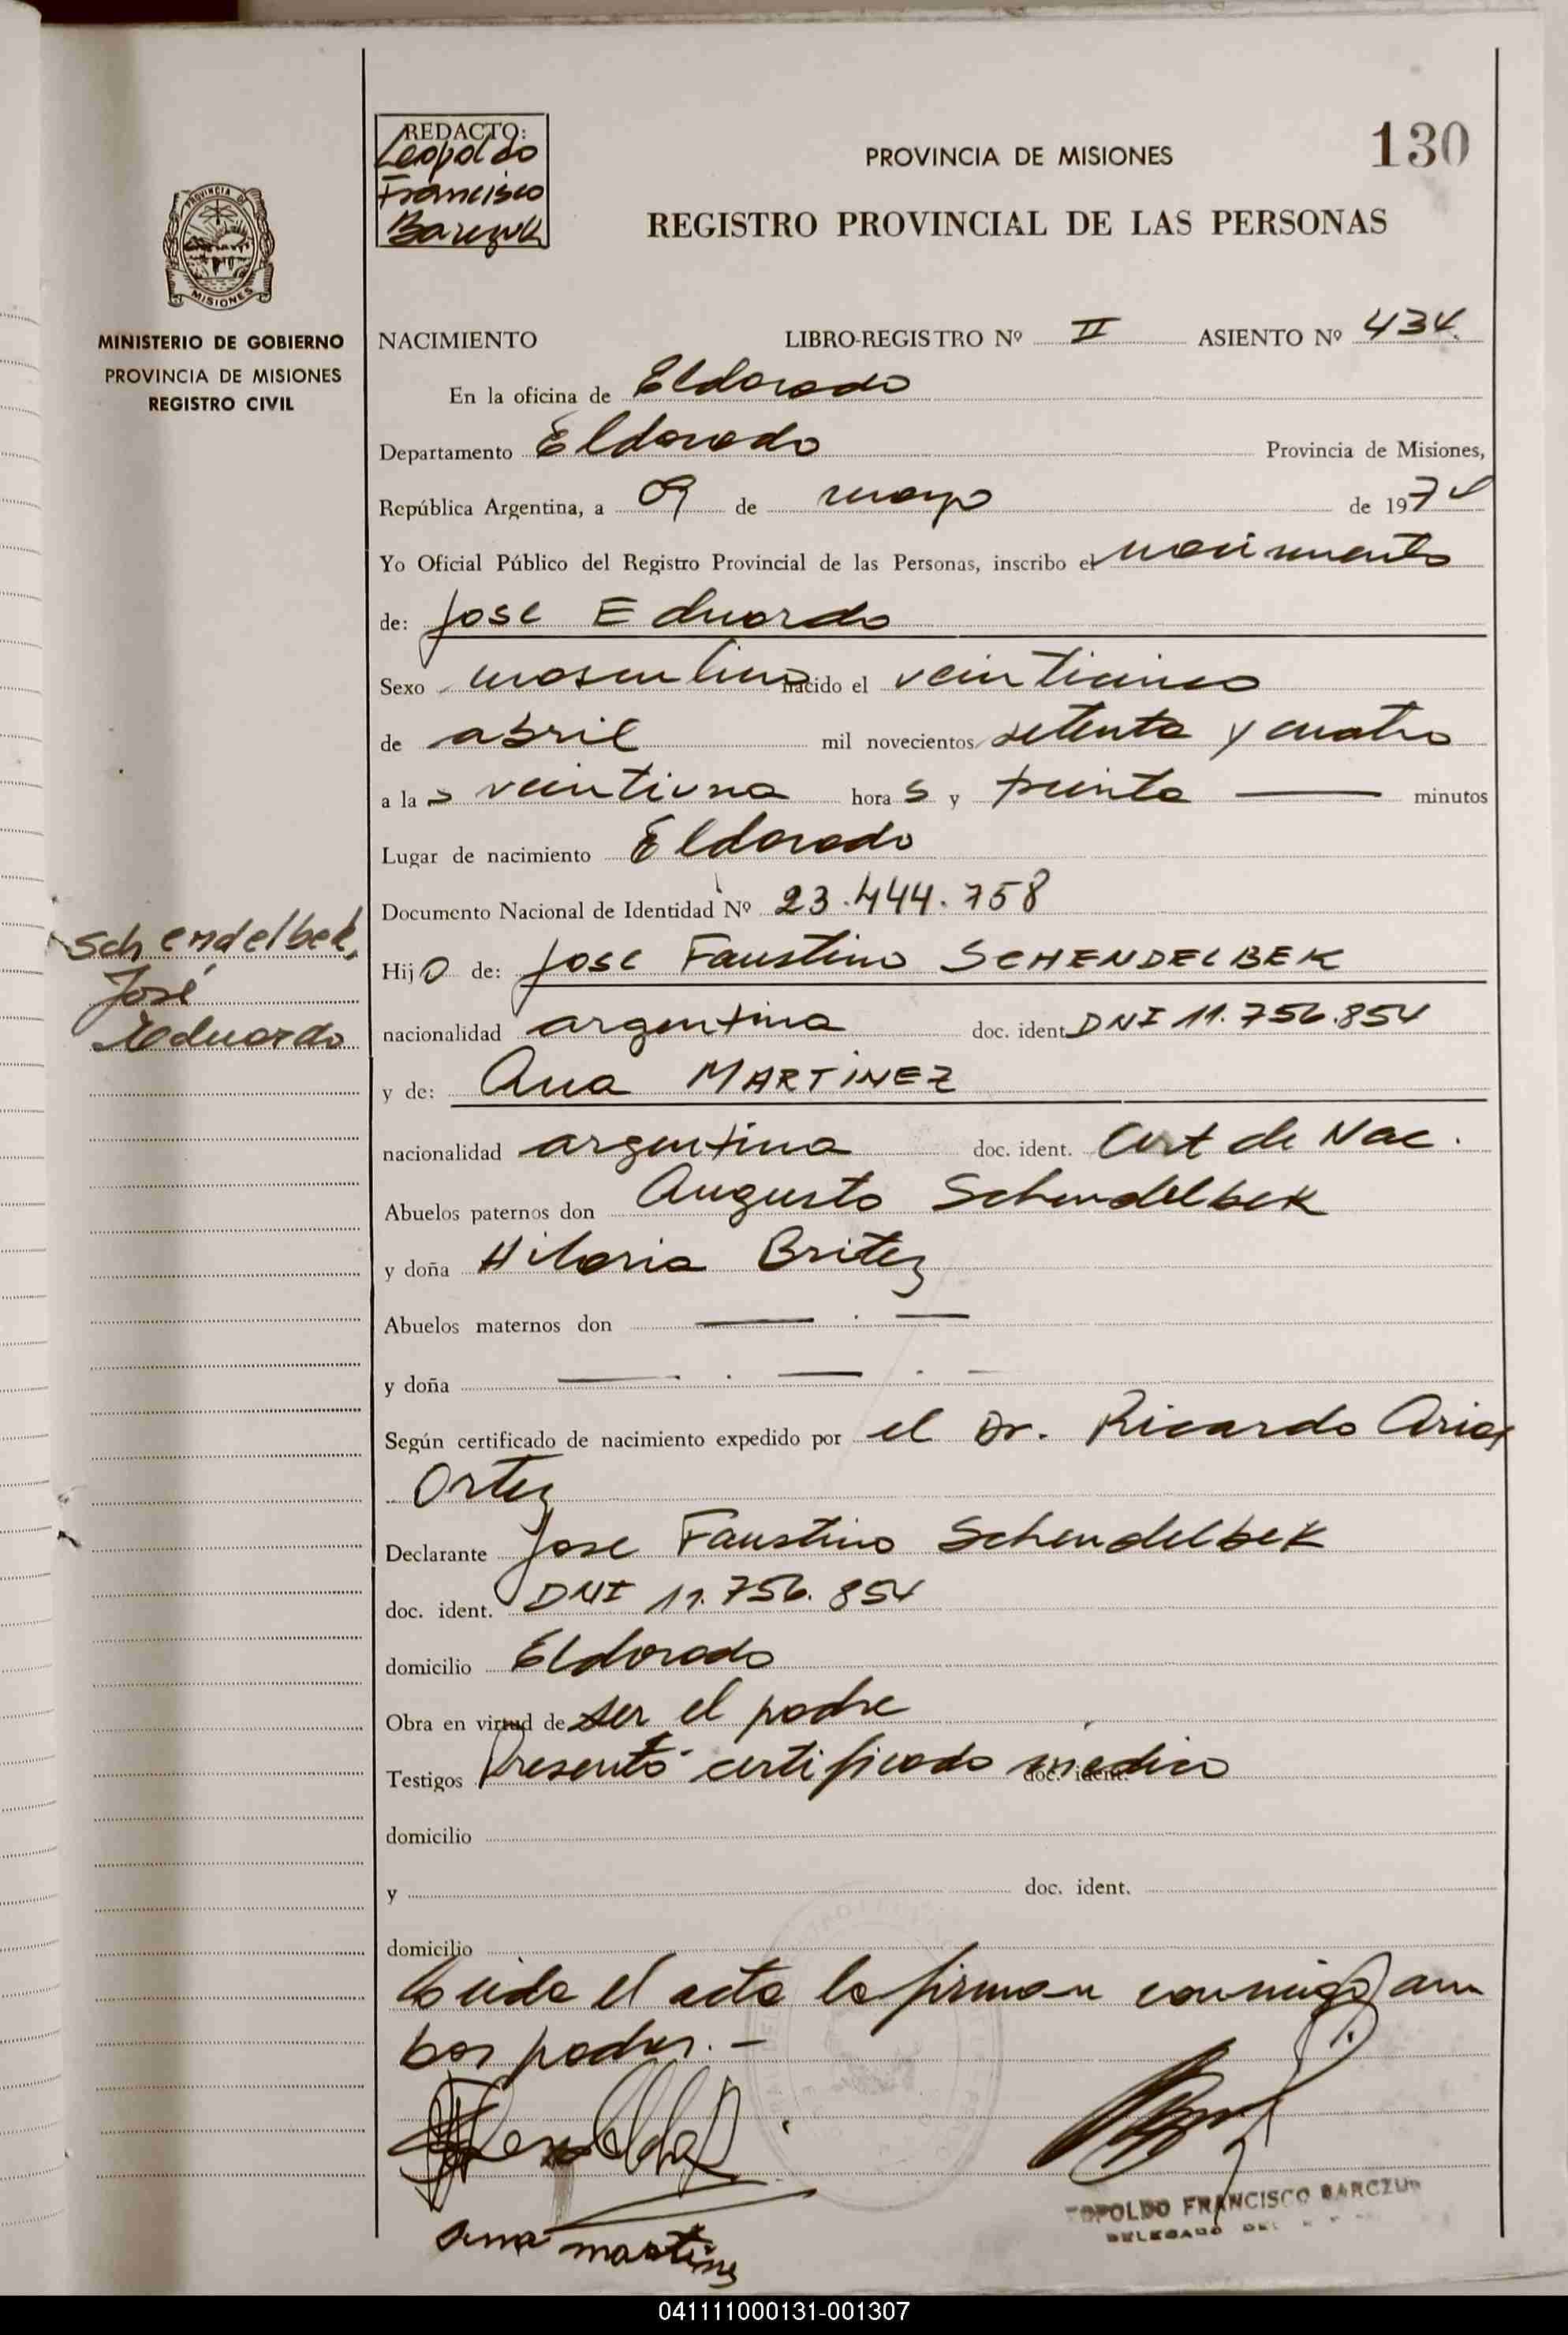 130
REDACTO:
Leopoldo
Francisco
Barczuk
PROVINCIA DE MISIONES
REGISTRO PROVINCIAL DE LAS PERSONAS
PROVINCIA DE
MISIONES
MINISTERIO DE GOBIERNO
PROVINCIA DE MISIONES
REGISTRO CIVIL
NACIMIENTO LIBRO-REGISTRO Nº II ASIENTO Nº 434.
En la oficina de Eldorado
Departamento Eldorado Provincia de Misiones,
República Argentina, a 09 de mayo de 1974
Yo Oficial Público del Registro Provincial de las Personas, inscribo el nacimiento
de: Jose Eduardo
Sexo masculino nacido el veinticinco
de abril mil novecientos setenta y cuatro
a las veintiuna horas y treinta minutos
Lugar de nacimiento Eldorado
Documento Nacional de Identidad Nº 23.444.758
Schendelbek,
José
Eduardo
Hijo de: Jose Faustino SCHENDELBEK
nacionalidad argentina doc. ident. DNI 11.756.854
y de: Ana MARTINEZ
nacionalidad argentina doc. ident. Cert de Nac.
Abuelos paternos don Augusto Schendelbek
y doña Hilaria Britez
Abuelos maternos don
y doña
Según certificado de nacimiento expedido por el Dr. Ricardo Arias
Ortiz
Declarante Jose Faustino Schendelbek
doc. ident. DNI 11.756.854
domicilio Eldorado
Obra en virtud de ser el padre
Testigos Presentó certificado médico doc. ident.
domicilio
y doc. ident.
domicilio
Leida el acta la firman conmigo am
bos padres.-
LEOPOLDO FRANCISCO BARCZUK
DELEGADO
Ana Martinez
041111000131-001307